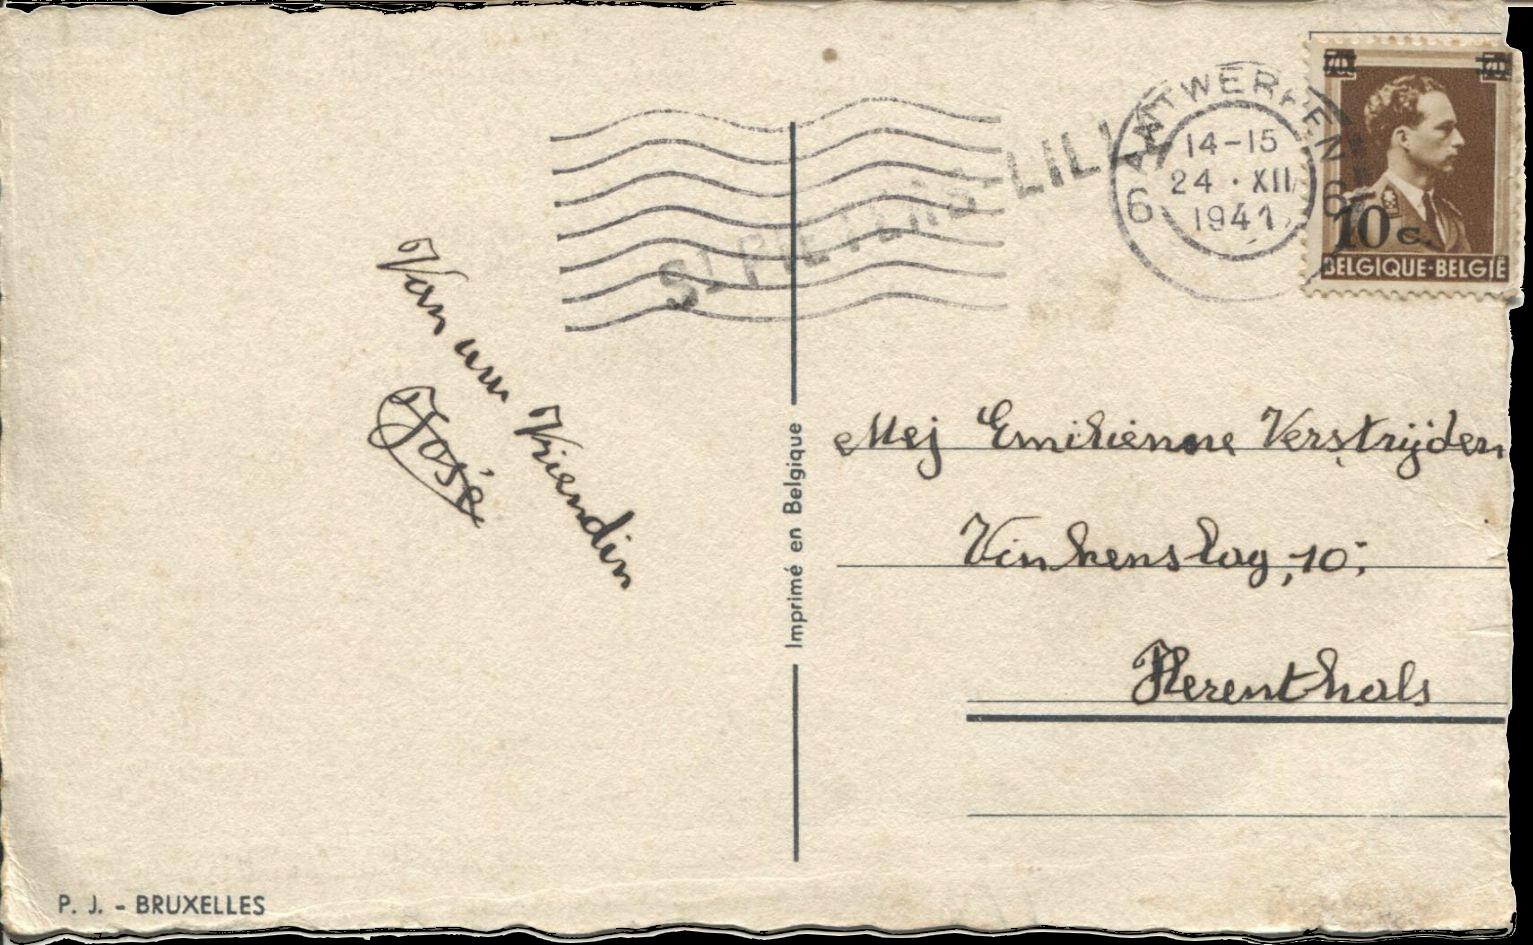 ANTWERPEN
6 6
14-15
24·XII
1941
70 70
10 c.
BELGIQUE·BELGIË
St PIETERS-LILL
Van uw Vriendin
José
Mej Emilienne Verstrijden
Vinkenslag, 10;
Herenthals
Imprimé en Belgique
P. J. - BRUXELLES